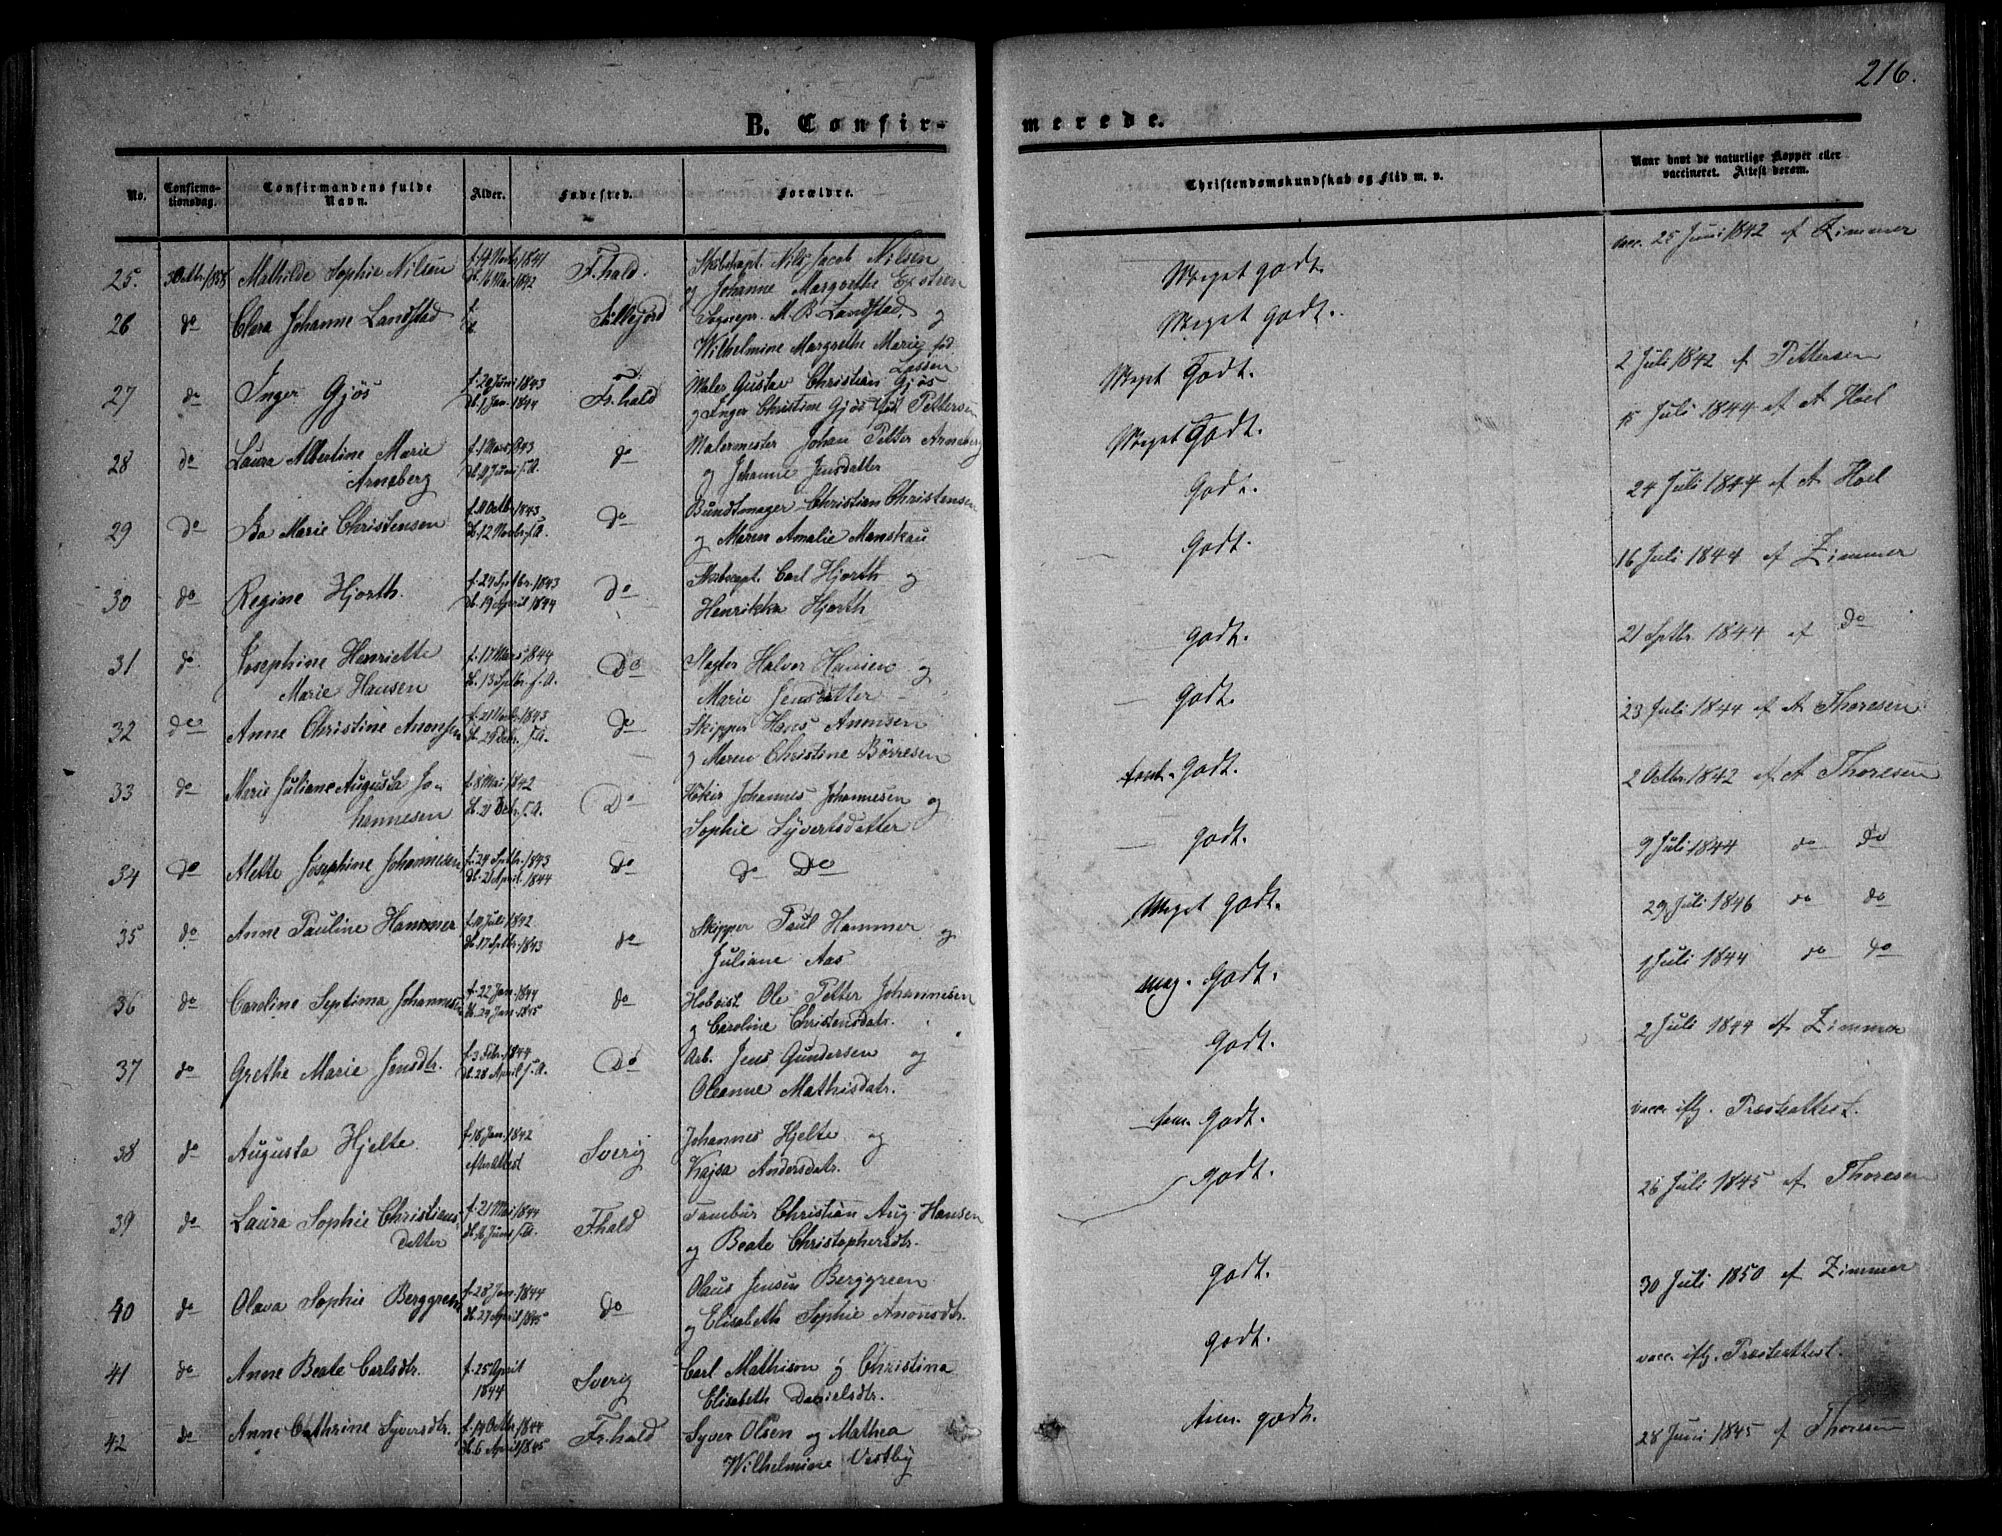 216.
B. Confir-
merede.
No.
Confirma-
tionsdag.
Confirmandens fulde
Navn.
Alder.
Fødested.
Forældre.
Christendomskundskab og Flid m. v.
Naar havt de naturlige Kopper eller
vaccineret. Attest derom.
25. Mathilde Sophie Nilsen f. 14 1841 F.hald. Skibskapt. Nils Jacob Nilsen Meget godt. vacc. 25 Juni 1842 af Zimmer
d. 16 Mai 1842 og Johanne Margrethe
26 do Clara Johanne Landstad f. Sillejord Sognepr. M. B. Landstad og Meget godt.
d. Wilhelmine Margrethe Marie fød
Lassen
27 do Inger Gjøs f. 20 Juni 1843 Fr.hald Maler Gustav Christian Gjøs Meget Godt. 2 Juli 1842 af Pettersen
d. 1 Jan. 1844 og Inger Christine Gjøs fød Pettersen
28 do Laura Albertine Marie f. 1 Mars 1843 do Malermester Johan Petter Arneberg Meget Godt. 15 Juli 1844 af A Hoel
Arneberg d. 11 Juni s.A. og Johanne Jensdatter
29 do Marie Christensen f. 11 Octbr. 1843 do Bundtmager Christian Christensen Godt. 24 Juli 1844 af A Hoel
d. 12 Novbr. s.A. og Maren Amalie Manskau
30 do Regine Hjorth. f. 24 Septbr. 1843 do Skibscapt. Carl Hjorth og Godt. 16 Juli 1844 af Zimmer
d. 19 April 1844 Henrikka Hjorth
31 do Josephine Henriette f. 17 Mars 1844 Do Slagter Halvor Hansen og Godt. 21 Septbr. 1844 af do
Marie Hansen d. 13 Septbr. s.A. Marie Jensdatter
32 do Anne Christine Anonsen f. 21 Novbr. 1843 do Skipper Hans Anonsen Godt. 23 Juli 1844 af A Thoresen
d. 29 Debr. s.A. og Maren Christine Børresen
33 do Marie Juliane Augusta Jo- f. 8 Mai 1842 Do Høker Johannes Johannesen og Godt. 2 Octbr. 1842 af A Thoresen
hannesen d. 21 Debr. s.A. Sophie Syvertsdatter
34 do Alette Josephine Johannesen f. 24 Septbr. 1843 do do Do Godt. 9 Juli 1844 do do
d. 21 April. 1844
35 do Anne Pauline Hammer f. 11 Juli 1842 do Skipper Paul Hammer og Meget godt. 29 Juli 1846 do do
d. 17 Septbr. 1843 Juliane Aas
36 do Caroline Septima Johannesen f. 22 Jan. 1844 do Hoboist Ole Petter Johannesen meg. Godt. 1 Juli 1844 do do
d. 29 Jan. 1845 og Caroline Christensdatr.
37 do Grethe Marie Jensdtr. f. 3 Febr. 1844 Do Arb. Jens Gundersen og Godt. 2 Juli 1844 af Zimmer
d. 28 April s.A. Oleanne Mathisdatr.
38 do Augusta Hjelte f. 18 Jan. 1842 Sverig Johannes Hjelte og tem. Godt. vacc. iflg. Præsteattest.
efter Attest Kajsa Andersdatr.
39 do Laura Sophie Christians- f. 21 Mai 1844 F.hald Tambur Christian Aug. Hansen Godt. 26 Juli 1845 af Thoresen
datter d. 16 Juni s.A. og Beate Christophersdtr.
40 do Olava Sophie Berggreen f. 28 Jan. 1844 do Olaus Jensen Berggreen godt. 30 Juli 1850 af Zimmer
d. 27 April 1845 og Elisabeth Sophie Anonsdtr.
41 do Anne Beate Carlsdtr. f. 25 April Sverig Carl Mathison og Christina godt. vacc. iflg. Præsteattest.
1844 Elisabeth Danielsdtr.
42 do Anne Cathrine Syversdtr. f. 19 Octbr. 1844 Fr.hald Syver Olsen og Mathea tem. godt. 28 Juni 1845 af Thoresen
d. 6 April 1845 Wilhelmine Vestby